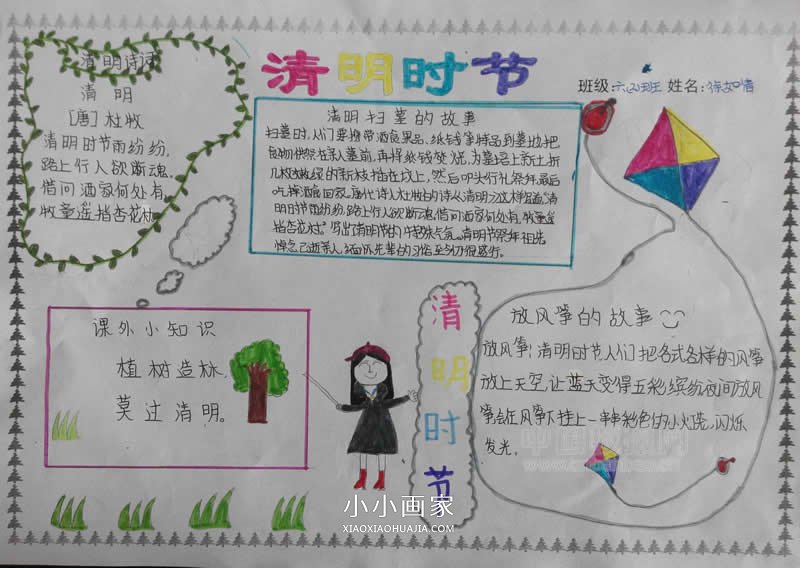 清明时节
班级:六(2)班 姓名:徐如情
清明诗词
清 明
[唐]杜牧
清明时节雨纷纷,
路上行人欲断魂。
借问酒家何处有,
牧童遥指杏花村。
清明扫墓的故事
扫墓时,人们要携带酒食果品、纸钱等物品到墓地,把
食物供祭在亲人墓前,再将纸钱焚烧,为坟墓培上新土,折
几枝嫩绿的新枝插在坟上,然后叩头行礼祭拜,最后
吃掉酒食回家。唐代诗人杜牧的诗《清明》这样写道:“清
明时节雨纷纷,路上行人欲断魂。借问酒家何处有,牧童遥
指杏花村。”写出清明节的特殊气氛。清明节祭拜祖先
悼念已逝亲人
课外小知识
植树造林,
莫过清明。
清
明
时
节
放风筝的故事
放风筝:清明时节人们把各式各样的风筝
放上天空,让蓝天变得五彩缤纷夜间放风
筝会在风筝下挂上一串串彩色的小火花,闪烁
发光。
小小画家
XIAOXIAOHUAJIA.COM